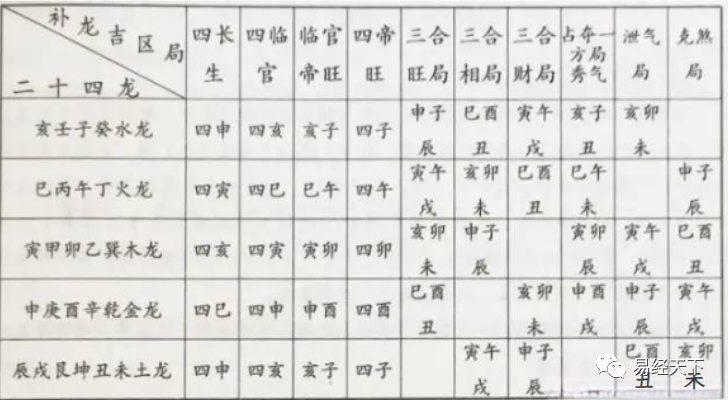 补龙吉区局
二十四龙
四长生 四临官 临官帝旺 四帝旺 三合旺局 三合相局 三合财局 占夺一方局秀气 泄气局 克煞局
亥壬子癸水龙 四申 四亥 亥子 四子 申子辰 巳酉丑 寅午戌 亥子丑 亥卯未
巳丙午丁火龙 四寅 四巳 巳午 四午 寅午戌 亥卯未 巳酉丑 巳午未 申子辰
寅甲卯乙巽木龙 四亥 四寅 寅卯 四卯 亥卯未 申子辰 寅卯辰 寅午戌 巳酉丑
申庚酉辛乾金龙 四巳 四申 申酉 四酉 巳酉丑 亥卯未 申酉戌 申子辰 寅午戌
辰戌艮坤丑未土龙 四申 四亥 亥子 四子 寅午戌 申子辰 巳酉丑 亥卯未
易经天下